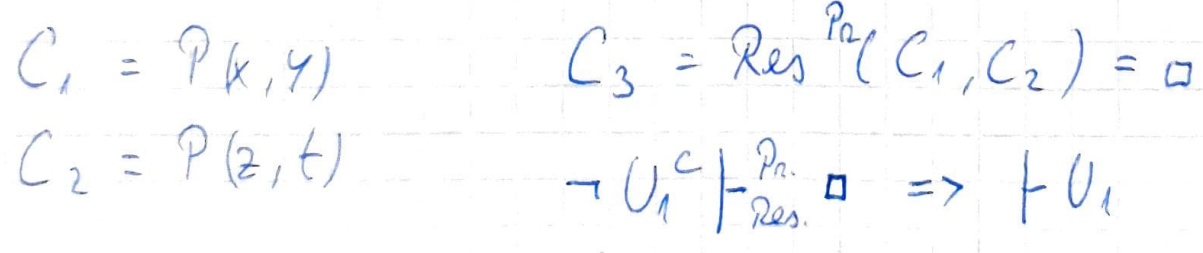 C₁ = P(x,y)
C₂ = P(z,t)
C₃ = Res^Pr(C₁,C₂) = □
¬U₁^C ⊢^Pr._Res. □ => ⊢ U₁